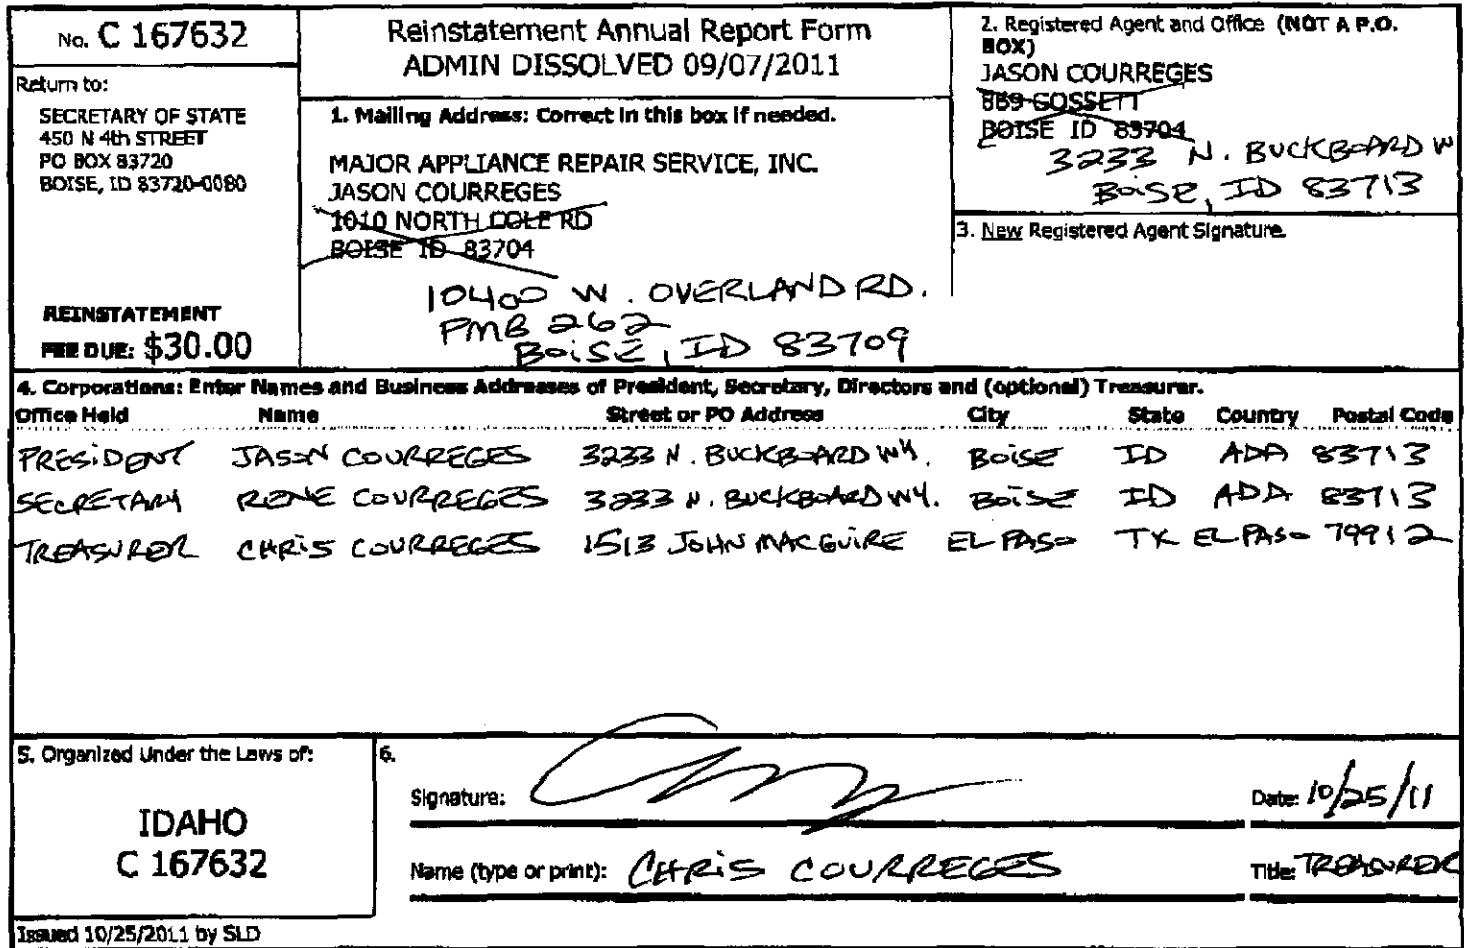 No. C 167632
Return to:
SECRETARY OF STATE
450 N 4th STREET
PO BOX 83720
BOISE, ID 83720-0080
REINSTATEMENT
FEE DUE: $30.00
Reinstatement Annual Report Form
ADMIN DISSOLVED 09/07/2011
1. Mailing Address: Correct in this box if needed.
MAJOR APPLIANCE REPAIR SERVICE, INC.
JASON COURREGES
1010 NORTH COLE RD
BOISE ID 83704
10400 W. OVERLAND RD.
PMB 262
BOISE, ID 83709
2. Registered Agent and Office (NOT A P.O.
BOX)
JASON COURREGES
869 GOSSETT
BOISE ID 83704
3233 N. BUCKBOARD W
BOISE, ID 83713
3. New Registered Agent Signature.
4. Corporations: Enter Names and Business Addresses of President, Secretary, Directors and (optional) Treasurer.
Office Held Name Street or PO Address City State Country Postal Code
PRESIDENT JASON COURREGES 3233 N. BUCKBOARD WY. BOISE ID ADA 83713
SECRETARY RENE COURREGES 3233 N. BUCKBOARD WY. BOISE ID ADA 83713
TREASURER CHRIS COURREGES 1513 JOHN MACGUIRE EL PASO TX EL PASO 79912
5. Organized Under the Laws of:
IDAHO
C 167632
6.
Signature:
Date: 10/25/11
Name (type or print): CHRIS COURREGES
Title: TREASURER
Issued 10/25/2011 by SLD